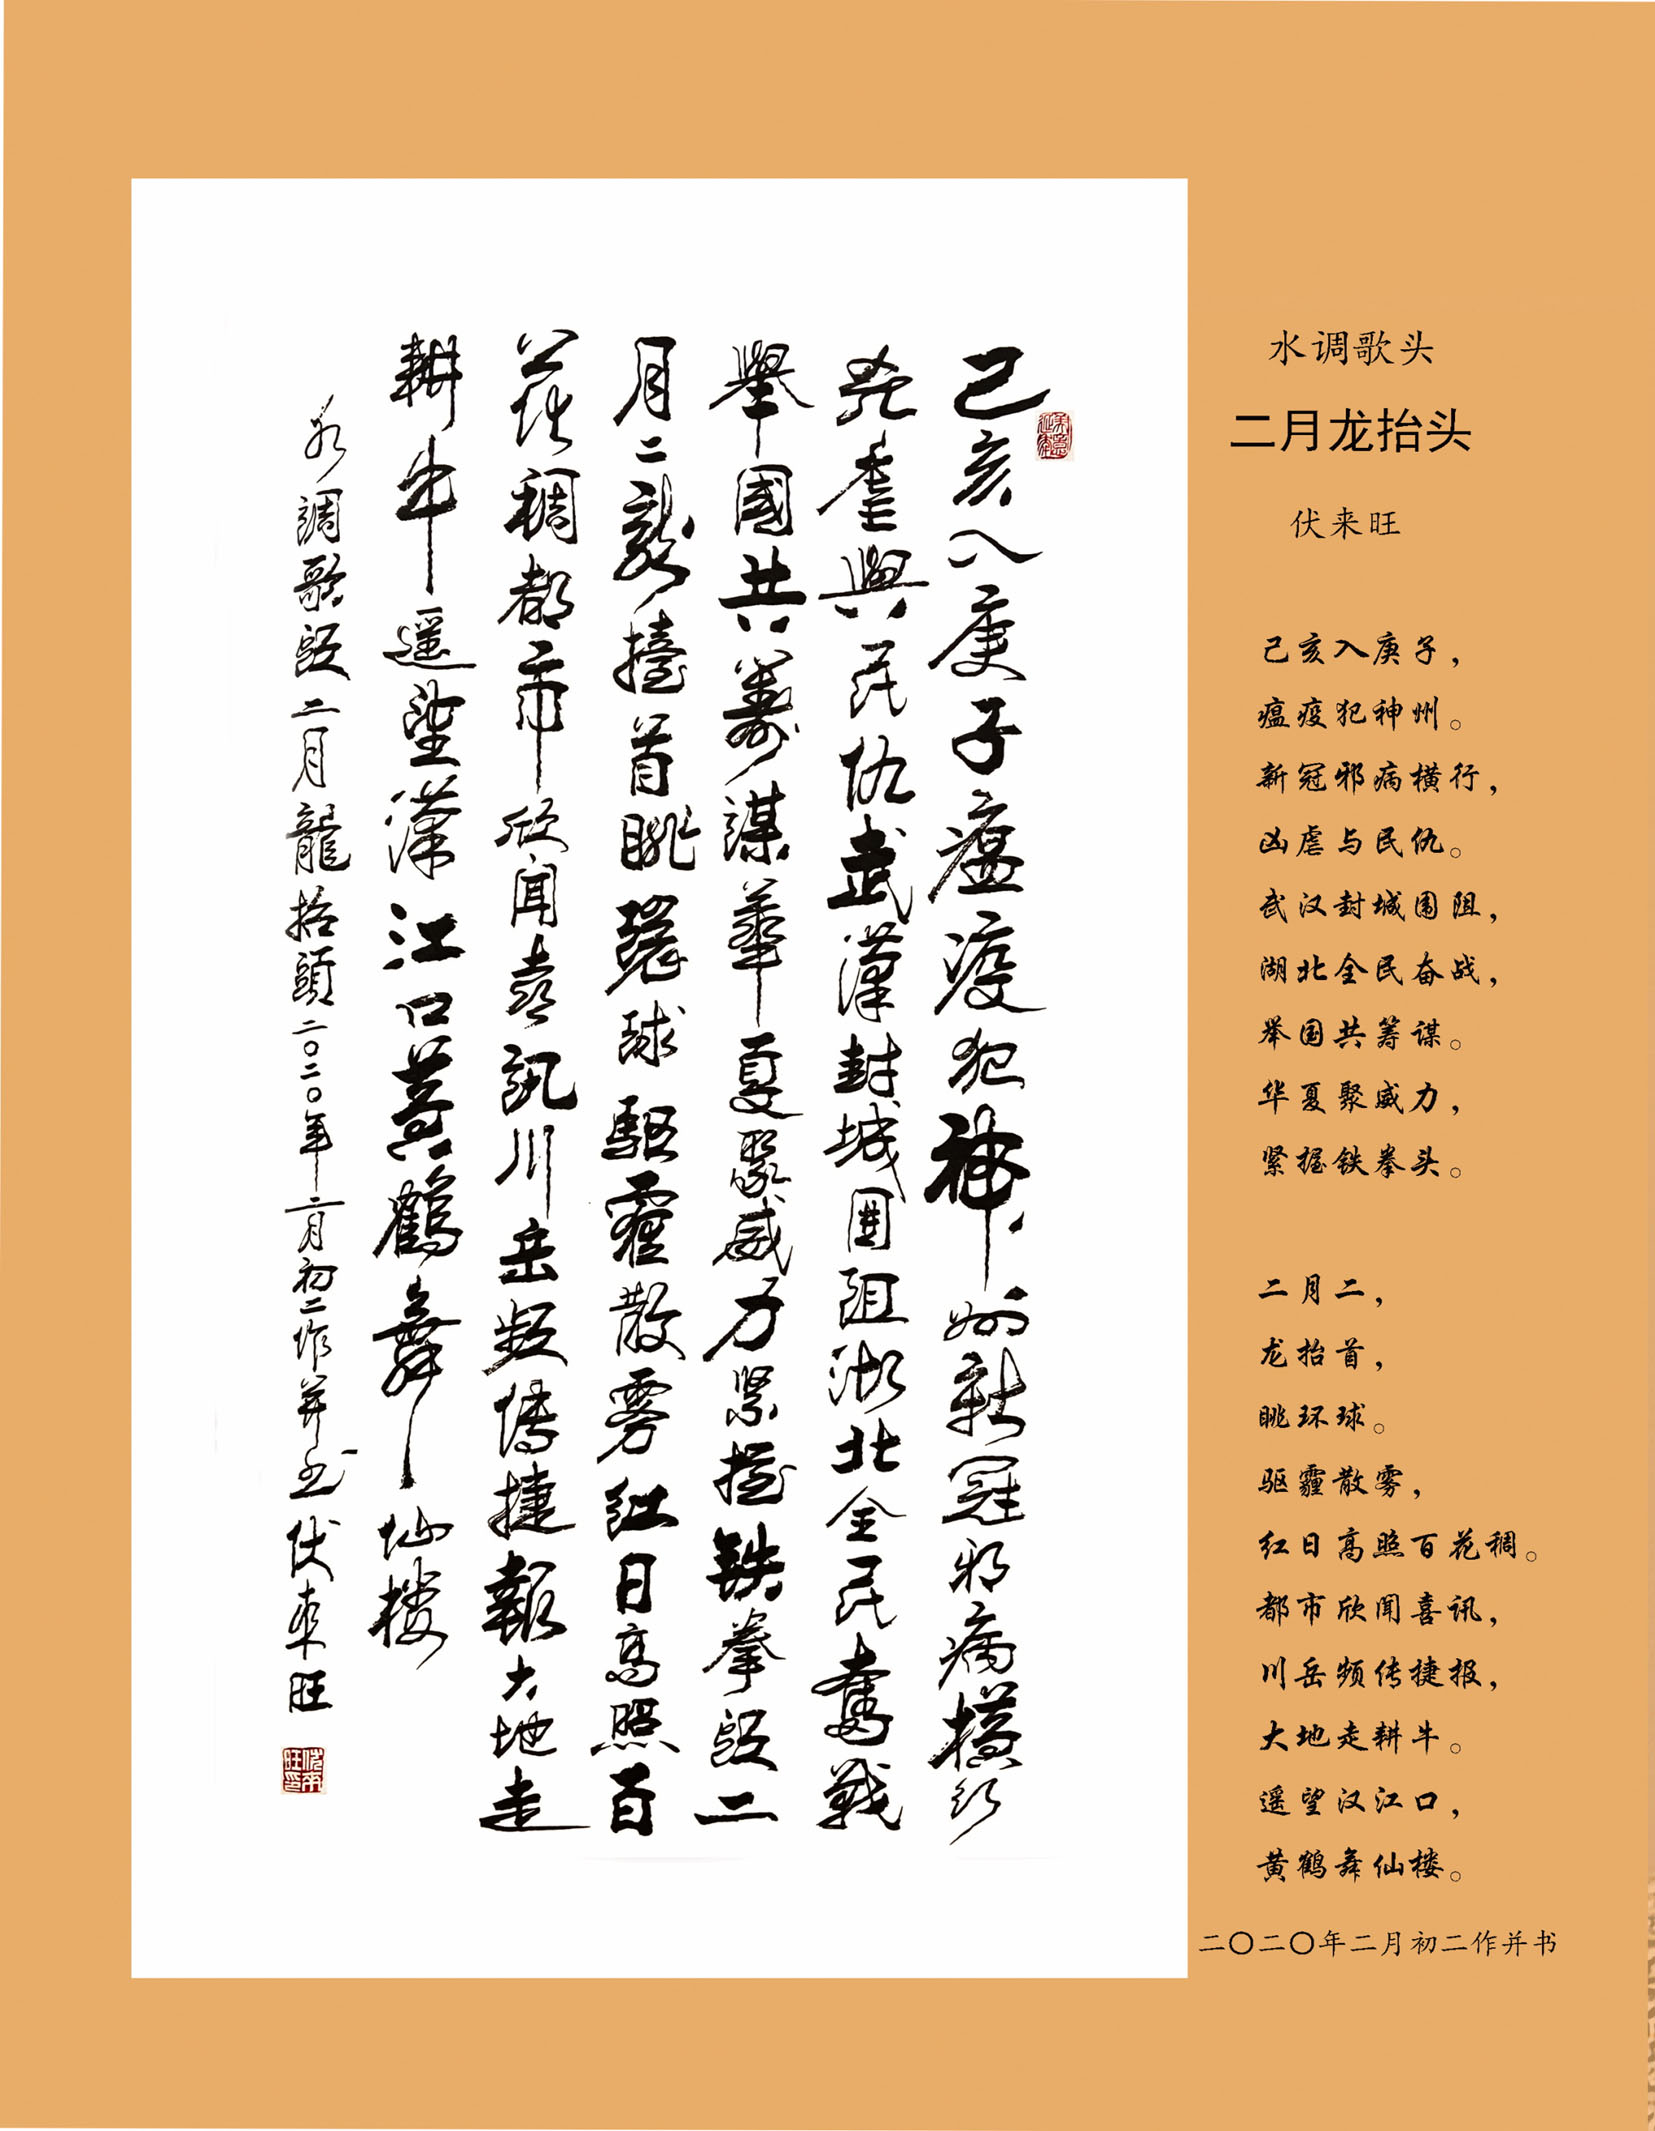 己亥入庚子瘟疫犯神州新冠邪病橫行
凶虐與民仇武漢封城圍阻湖北全民奮戰
舉國共籌謀華夏聚威力緊握鐵拳頭二
月二龍擡首眺環球驅霾散雾紅日高照百
花稠都市欣闻喜訊川岳頻傳捷報大地走
耕牛遥望漢江口黄鶴舞仙楼
水調歌頭二月龍抬頭二〇二〇年二月初二作并书伏來旺
伏來旺印
水调歌头
二月龙抬头
伏来旺
己亥入庚子，
瘟疫犯神州。
新冠邪病横行，
凶虐与民仇。
武汉封城围阻，
湖北全民奋战，
举国共筹谋。
华夏聚威力，
紧握铁拳头。
二月二，
龙抬首，
眺环球。
驱霾散雾，
红日高照百花稠。
都市欣闻喜讯，
川岳频传捷报，
大地走耕牛。
遥望汉江口，
黄鹤舞仙楼。
二〇二〇年二月初二作并书